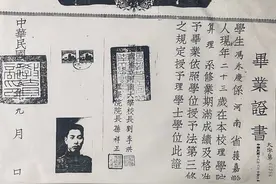 畢業證書
學生馮永慶係河南省獲嘉
人現年二十三歲在本校理學院
理系修業期滿成績及格准
予畢業依照學位授予法第三條
之規定授予理學士學位此證
大學校長劉季洪
院院長孫祥正
中華民國
九月 日